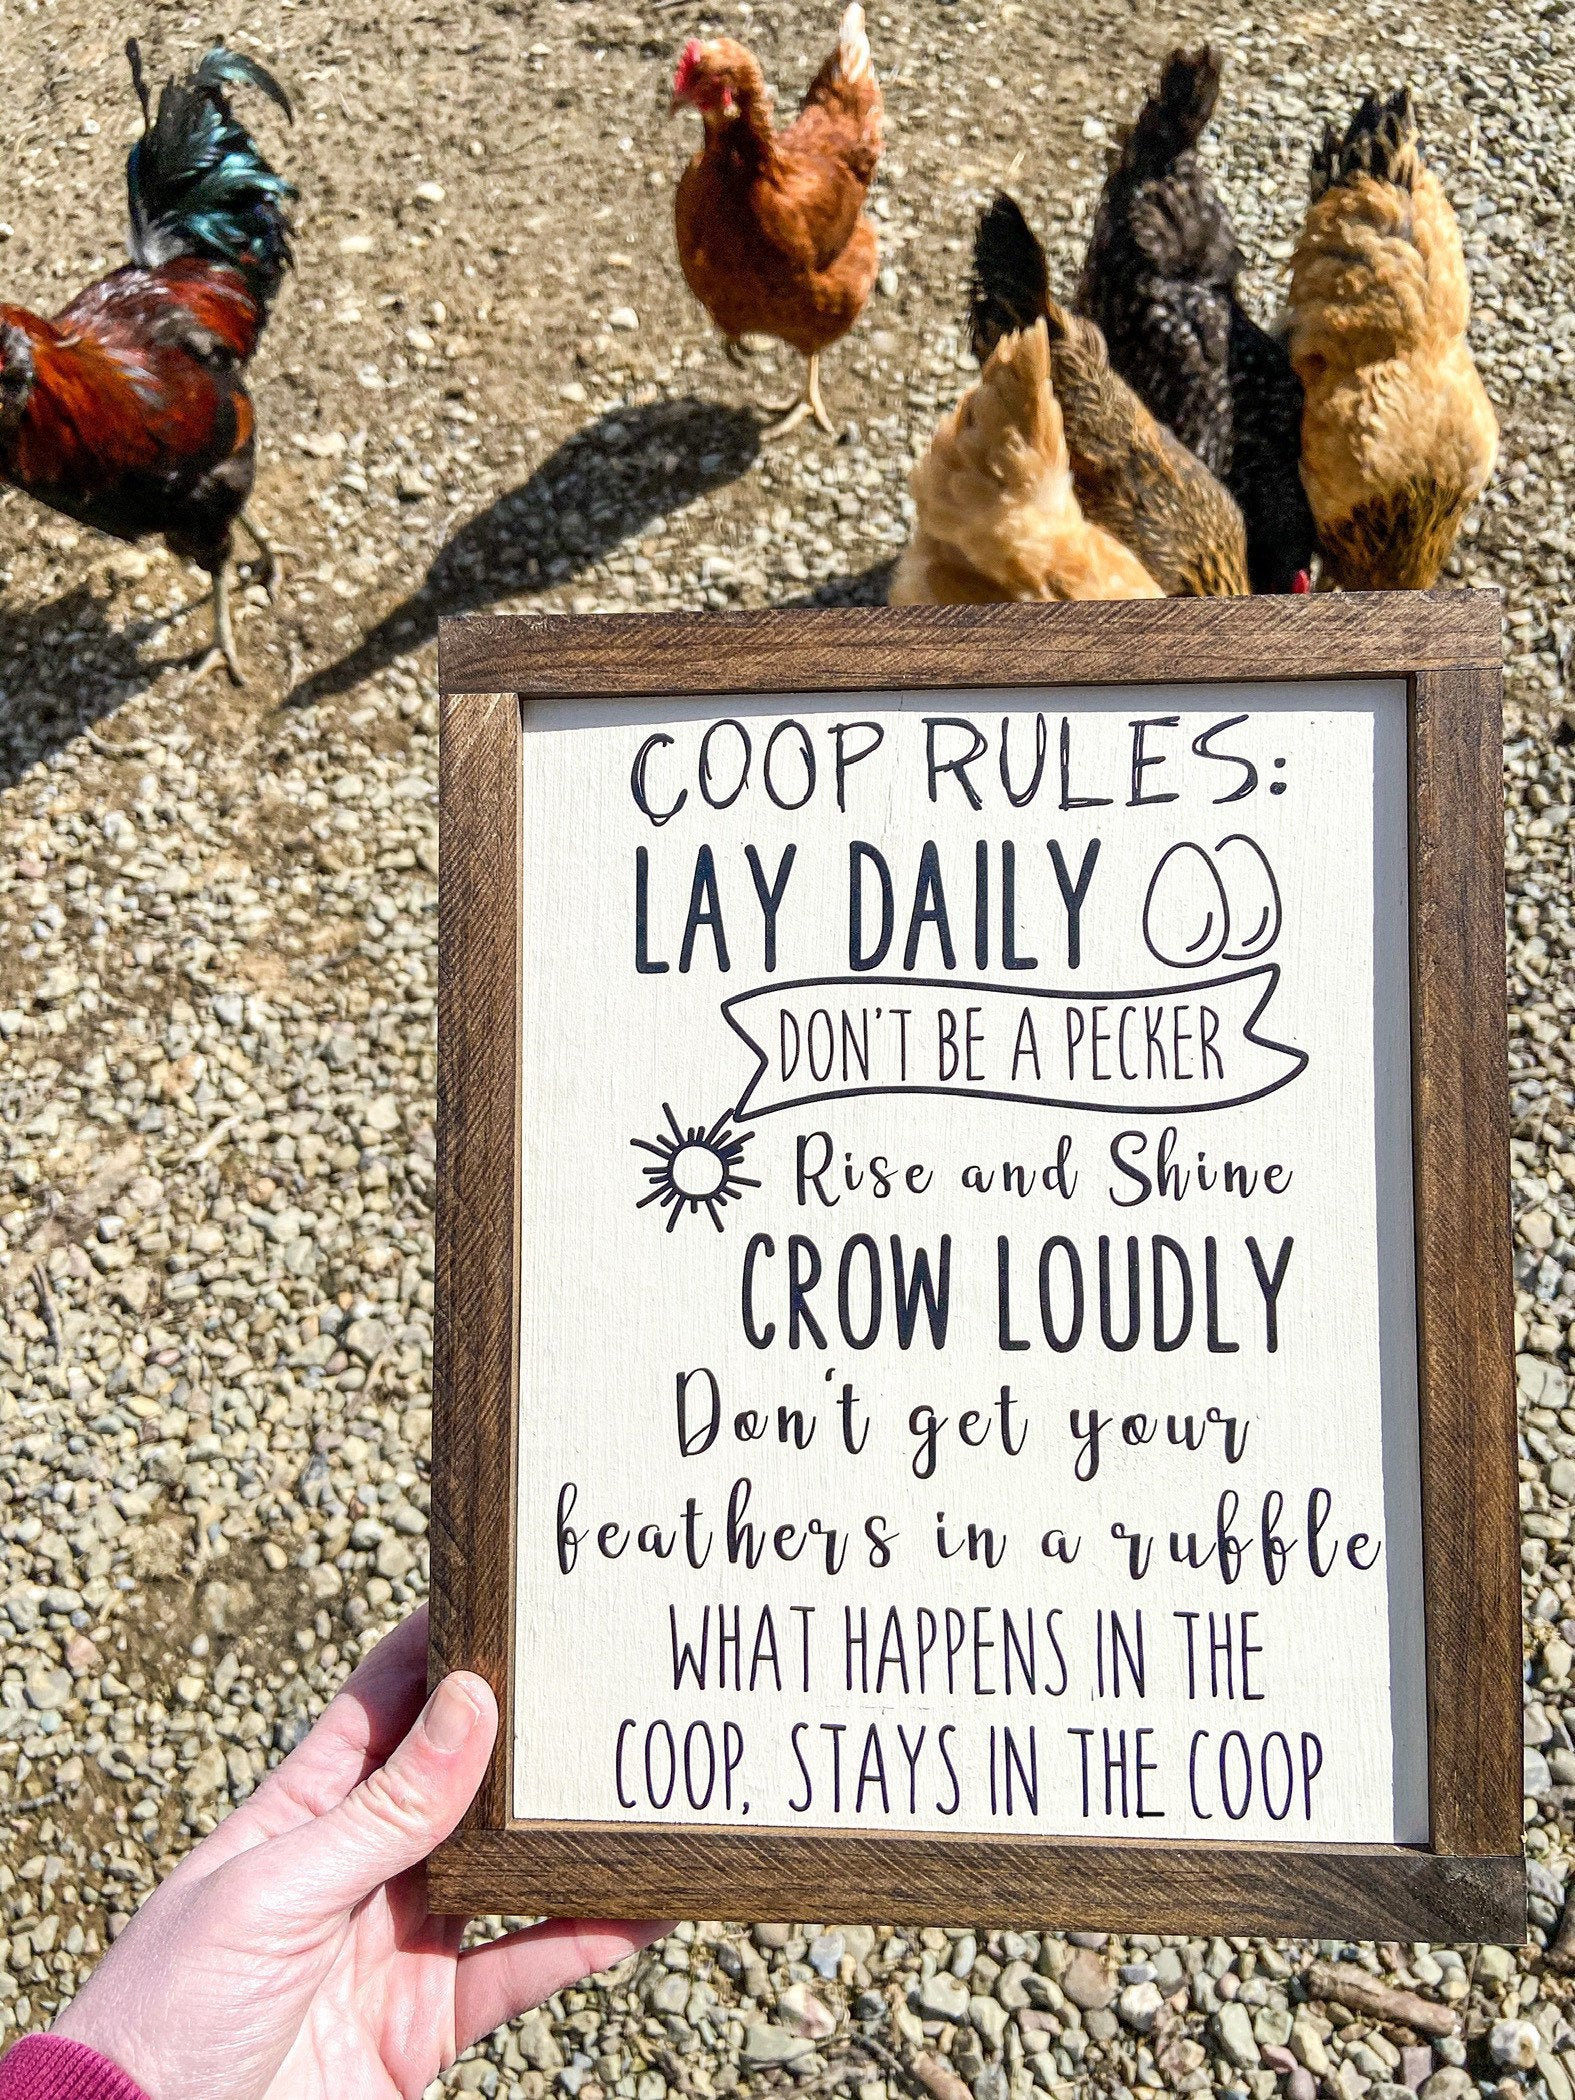 COOP RULES:
LAY DAILY
DON'T BE A PECKER
Rise and Shine
CROW LOUDLY
Don't get your
feathers in a ruffle
WHAT HAPPENS IN THE
COOP, STAYS IN THE COOP